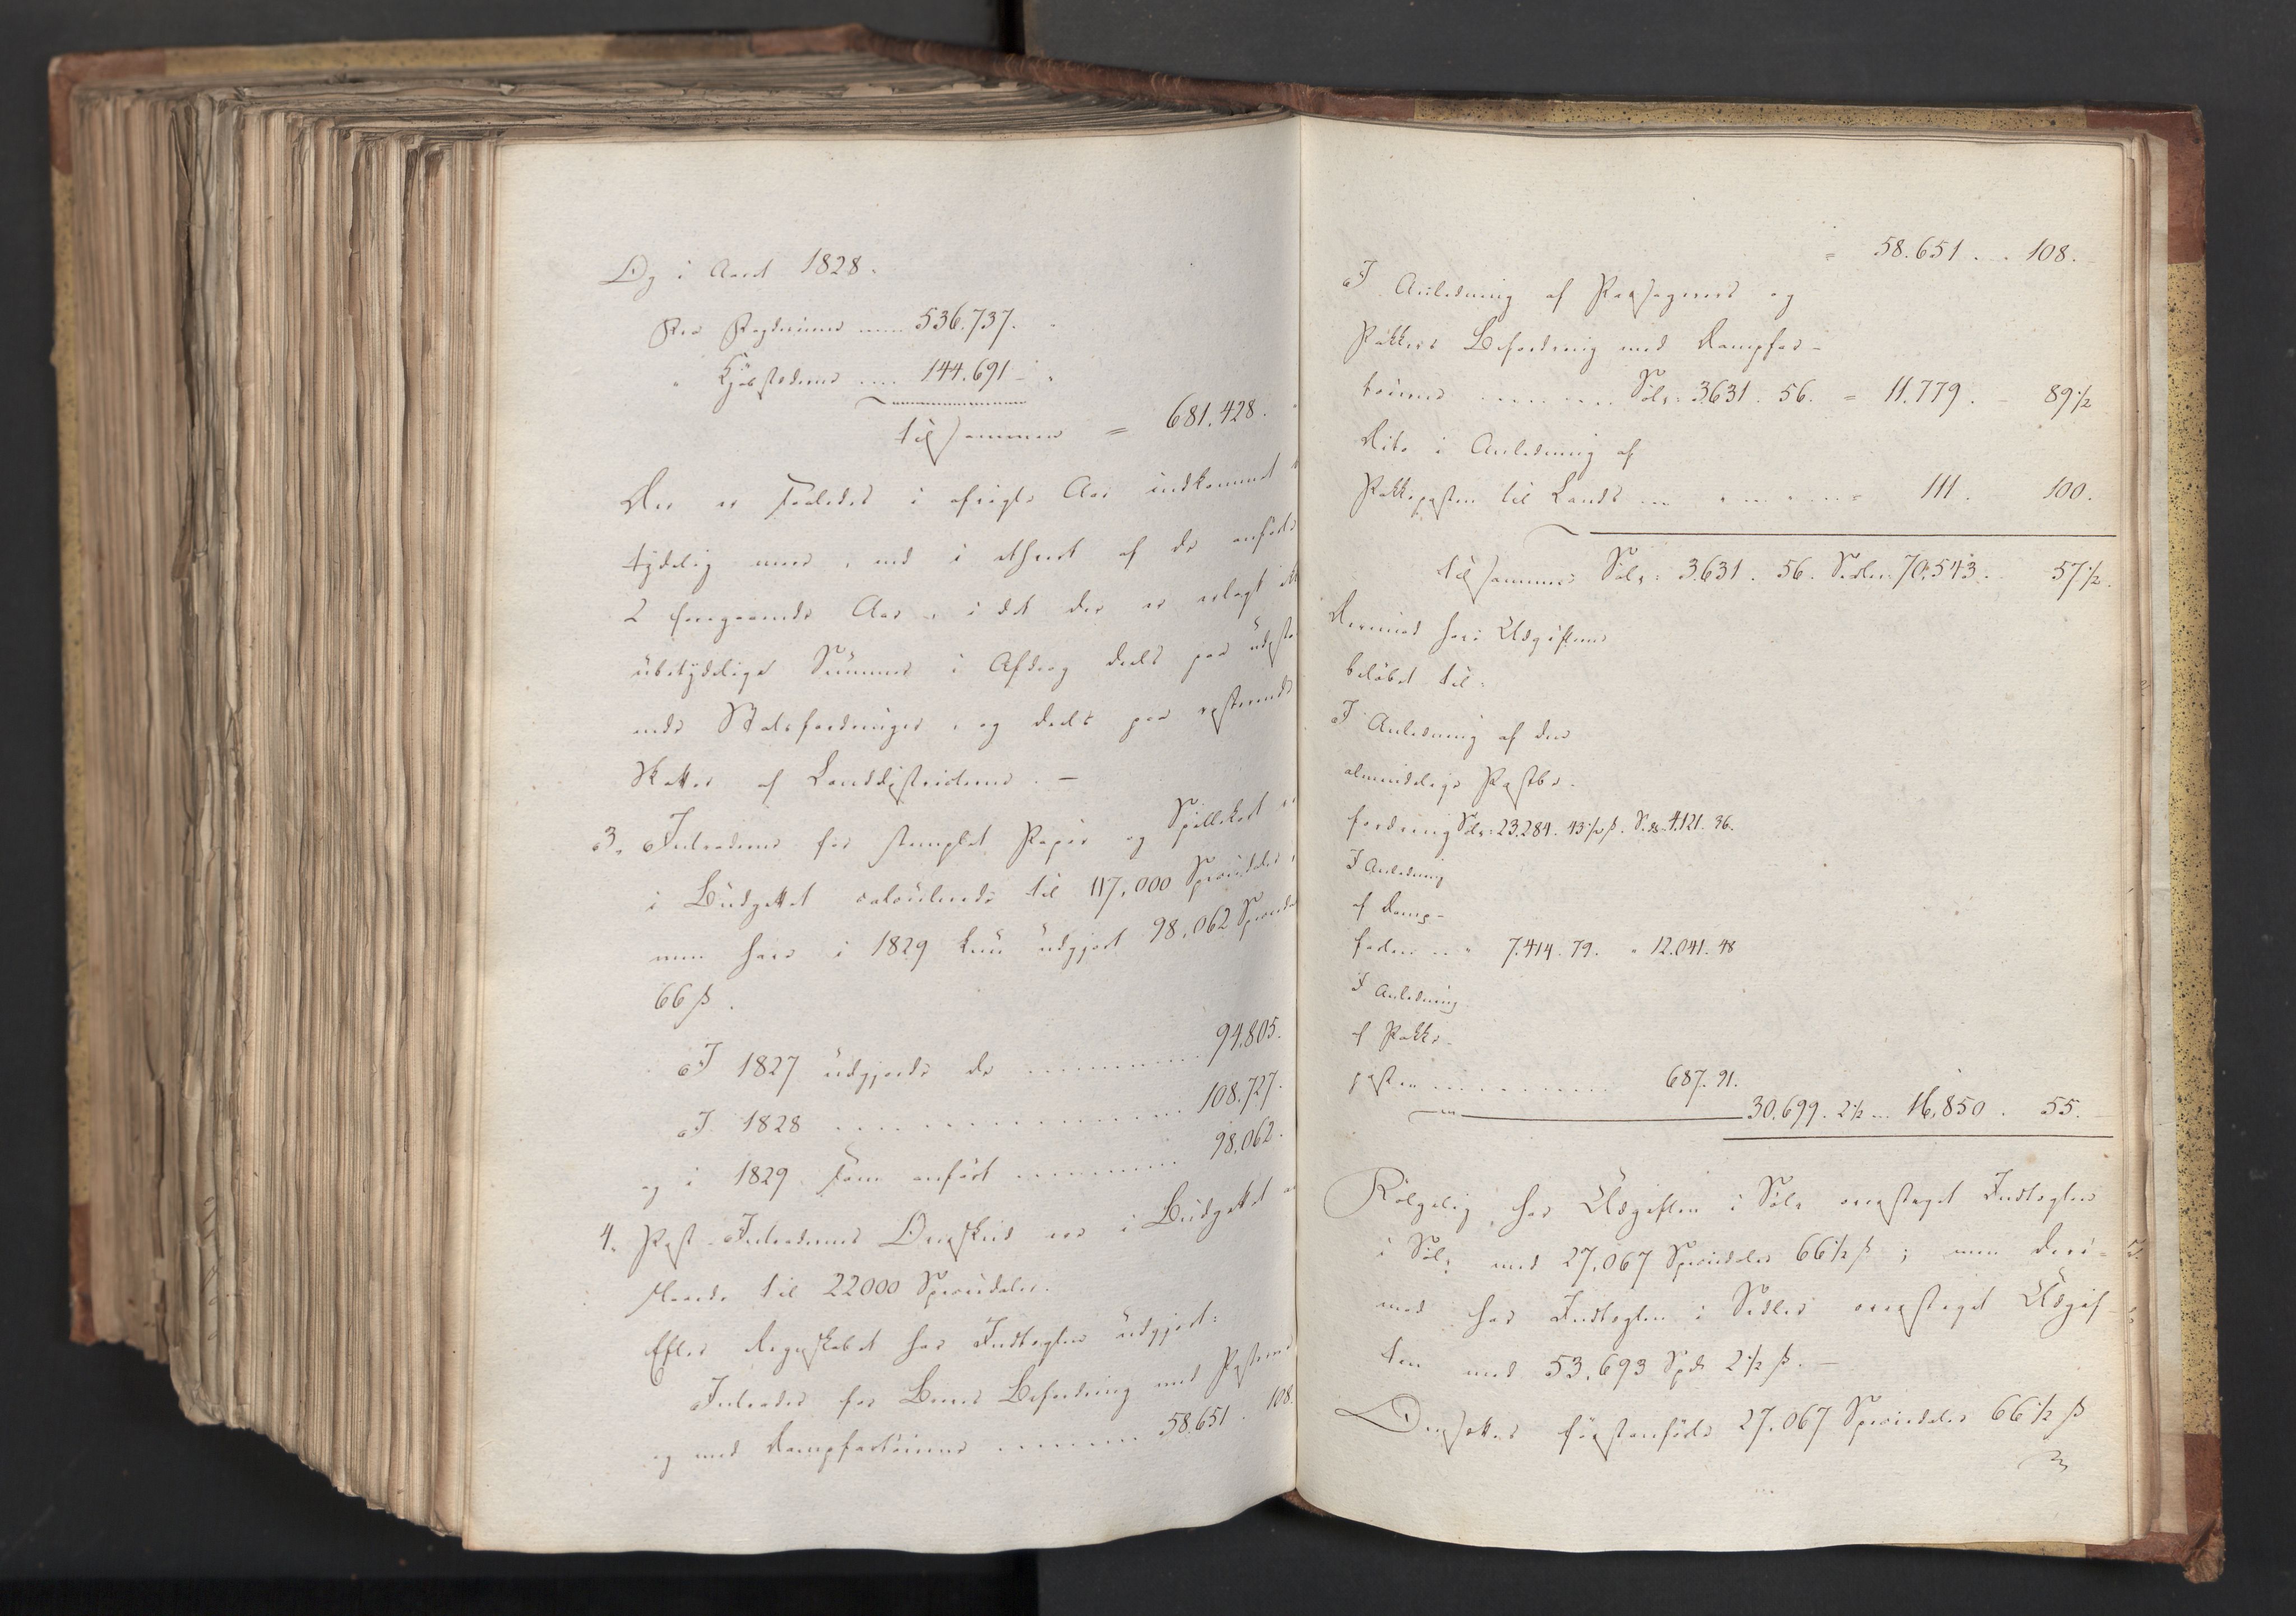 Og i Aaret 1828.
fra Bygderne ..... 536.737.
" Kjøbstæderne .... 144.691 -
tilsammen = 681.428.
Der er saaledes i afvigte Aar indkommet
tydelig meer, end i ethvert af de anførte
2 foregaaende Aar, idet der er erlagt ik
übetydelige Summer i Afdrag deels paa udestaa
ende Skatefordringer, og deels paa resterende
Skatter af Landdistricterne. -
3, Intraderne for stemplet Papir og Spillekort
i Büdgettet calculerede til 117,000 Speciedaler,
men have i 1829 kun üdgjort 98,062 Specieda
66 ß.
I 1827 üdgjorde de .......... 94.805.
I 1828 .................... 108.727.
og i 1829 som anført .......... 98.062.
4, Post-Intradernes Overskud var i Büdgettet
til 22000 Speciedaler.
Efter Regnskabet har Indtægten üdgjort:
Intrader for Breves Befordring med Posterne
og med Dampfartøierne ........ 58.651. 108.
= 58.651 .. 108.
I Anledning af Passagerers og
Pakkers Befordring med Dampfar-
tøierne ........ Sølv: 3631. 56. = 11.779. - 89 1/2
Dito i Anledning af
Pakkeposten til Lands ... = 111. 100.
tilsammen Sølv: 3631. 56. Sedler: 70.543. 57 1/2.
Derimod have Udgifterne
beløbet til:
I Anledning af den
almindelige Postbe-
fordring Sølv: 23.284. 43 1/2 ß. Sedl. 4.121. 36.
I Anledning
af Damp-
farten ... " 7.414. 79. " 12.041. 48
I Anledning
af Pakke-
posten ............ 687. 91.
30.699. 2 1/2 ... 16,850. 55.
Følgelig har Udgiften i Sølv oversteget Indtægten
i Sølv med 27,067 Speciedaler 66 1/2 ß; men deri-
mod har Indtægten i Sedler oversteget Udgif-
ten med 53,693 Spd. 2 1/2 ß. -
Omsættes førstanførte 27,067 Speciedaler 66 1/2 ß